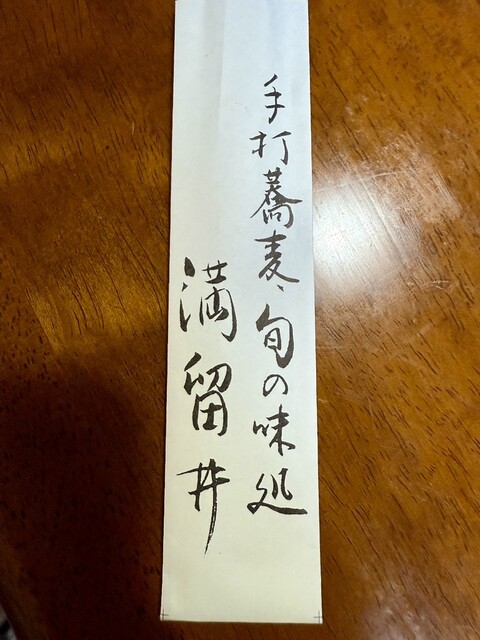 手打蕎麦、旬の味処
満留井